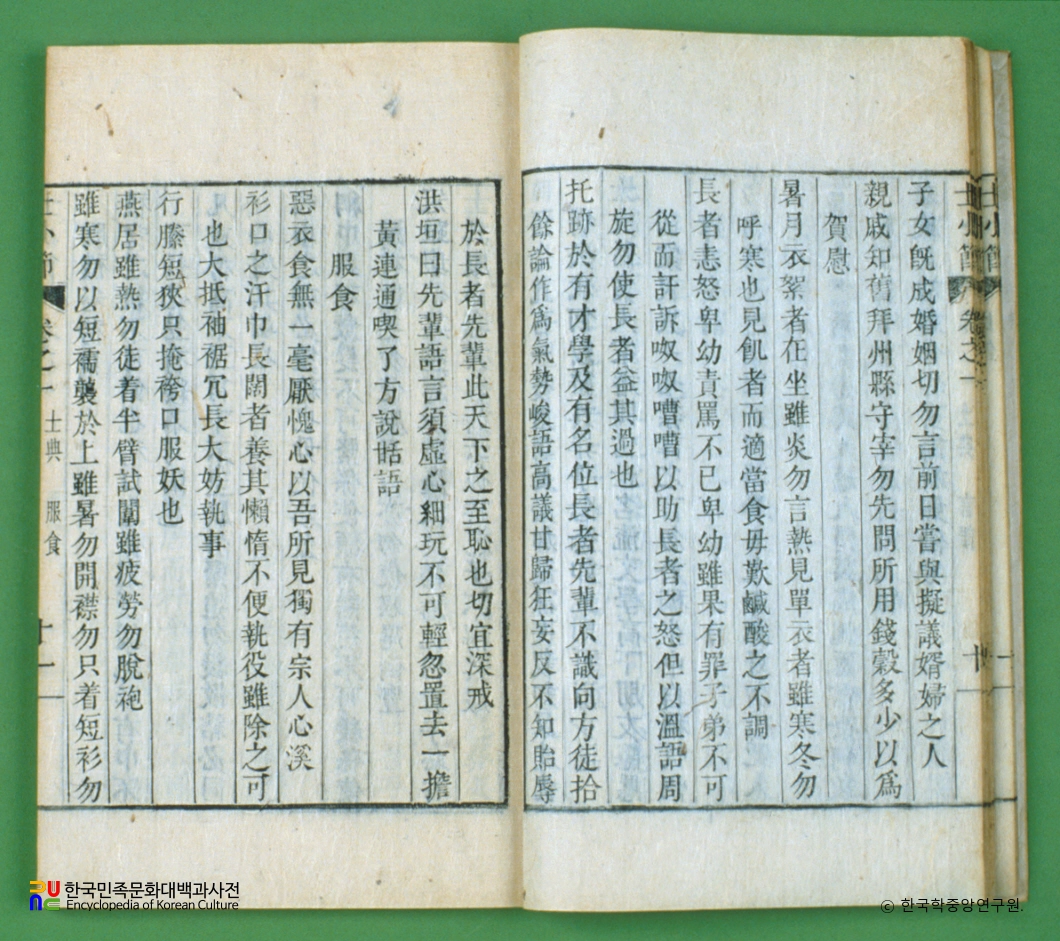 士小節
卷之一
子女旣成婚姻切勿言前日嘗與擬議婿婦之人
親戚知舊拜州縣守宰勿先問所用錢穀多少以爲
賀慰
暑月衣絮者在坐雖炎勿言熱見單衣者雖寒冬勿
呼寒也見飢者而適當食毋歎鹹酸之不調
長者恚怒卑幼責罵不已卑幼雖果有罪子弟不可
從而訐訴呶呶嘈嘈以助長者之怒但以溫語周
旋勿使長者益其過也
托跡於有才學及有名位長者先輩不識向方徒拾
餘論作爲氣勢峻語高議甘歸狂妄反不知貽辱
於長者先輩此天下之至恥也切宜深戒
洪垣曰先輩語言須虛心細玩不可輕忽置去一擔
黃連通喫了方說甛語
服食
惡衣食無一毫厭愧心以吾所見獨有宗人心溪
衫口之汗巾長闊者養其懶惰不便執役雖除之可
也大抵袖裾冗長大妨執事
行縢短狹只掩袴口服妖也
燕居雖熱勿徒着半臂試闈雖疲勞勿脫袍
雖寒勿以短襦襲於上雖暑勿開襟勿只着短衫勿
士小節 卷之一 士典 服食 十一
한국민족문화대백과사전
Encyclopedia of Korean Culture
© 한국학중앙연구원.